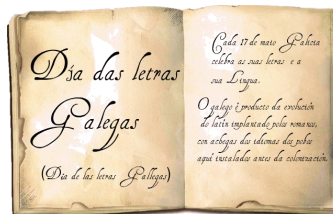 Día das letras
Galegas
(Dia de las letras Gallegas)
Cada 17 de maio Galicia
celebra as suas letras e a
sua Lingua.
O galego é producto da evolución
do latín implantado polos romanos,
con achegas dos idiomas dos pobos
aquí instalados antes da colonización.